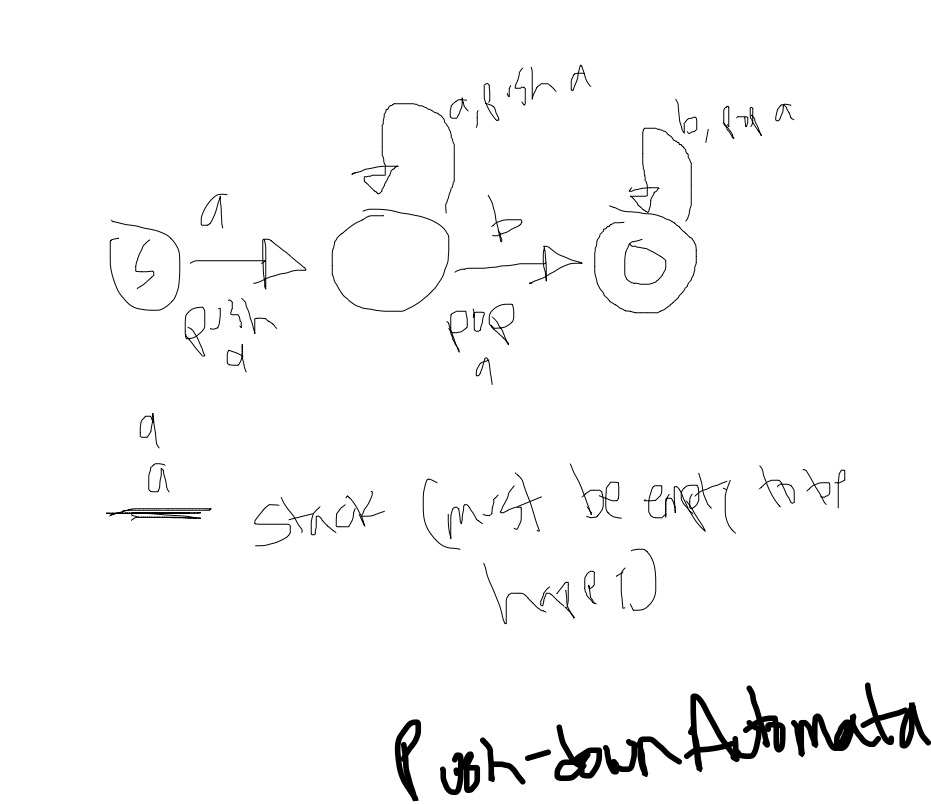 a, push a
b, pop a
a
b
S
push
a
pop
a
a
a
stack (must be empty to be
happy)
Push-down Automata